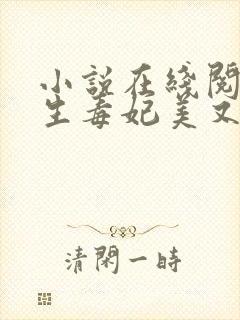 小說在綫閱
生毒妃美又
清閑一時